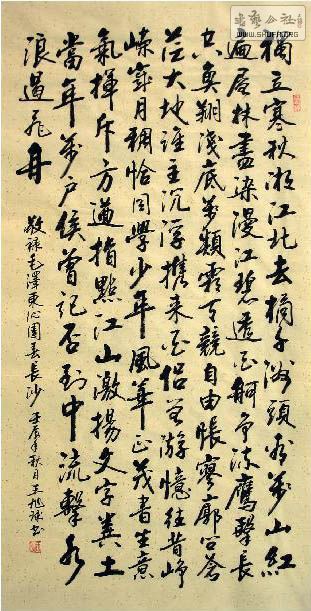 獨立寒秋湘江北去橘子洲頭看萬山紅
遍層林盡染漫江碧透百舸爭流鷹擊長
空魚翔淺底萬類霜天競自由悵寥廓問蒼
茫大地誰主沉浮攜來百侶曾游憶往昔崢
嶸歲月稠恰同學少年風華正茂書生意
氣揮斥方遒指點江山激揚文字糞土
當年萬戶侯曾記否到中流擊水
浪遏飛舟
敬錄毛澤東沁園春長沙 壬辰年秋月王旭書
书艺公社
WWW.SHUFA.ORG